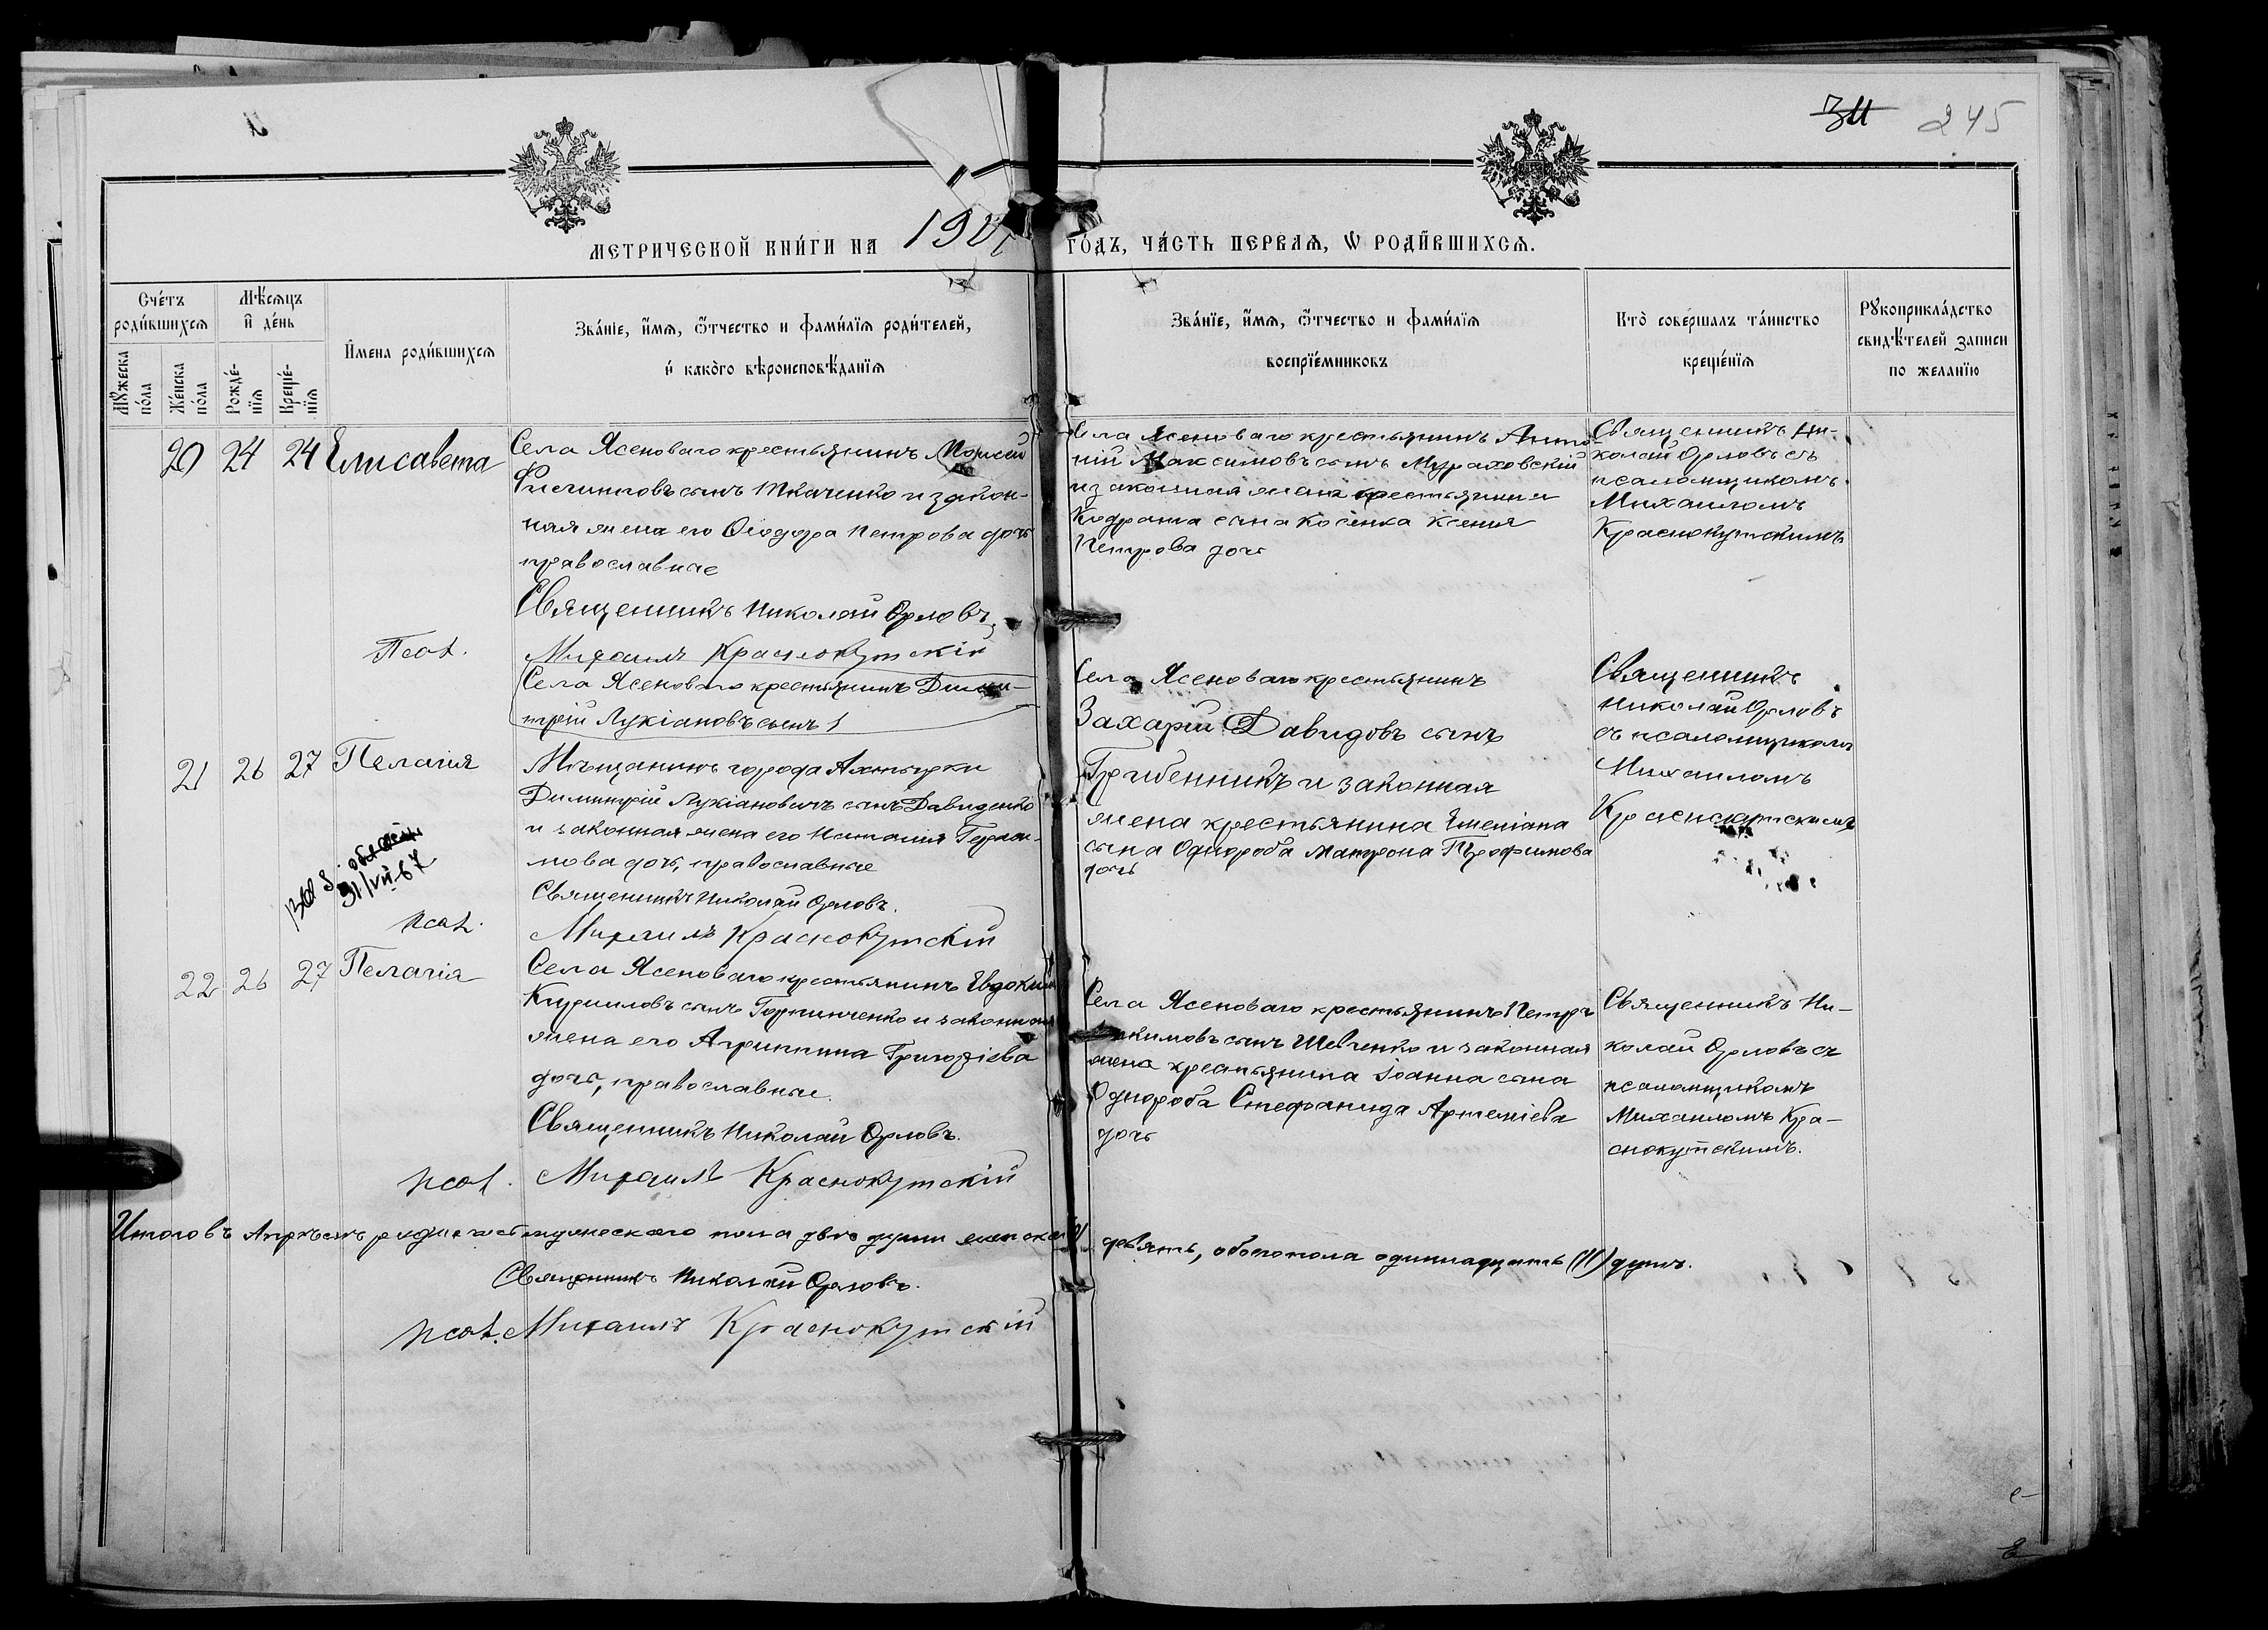 245
МЕТРИЧЕСКОЙ КНИ́ГИ НА 190
ГО́ДЪ, ЧА́СТЬ ПЕРВАѦ, Ѡ РОДИ́ВШИХСѦ.
Сче́тъ роди́вшихсѧ
Мѣ́сѧцъ и҆ де́нь
Мꙋ́жеска по́ла
Же́нска по́ла
Рожде́-нїѧ
Креще́-нїѧ
И҆мена роди́вшихсѧ
Зва́нїе, и҆́мѧ, ѻ҆́тчество и фами́лїѧ роди́телей,
и҆ како́го вѣроисповѣ́данїѧ
Зва́нїе, и҆́мѧ, ѻ҆́тчество и фами́лїѧ
воспрїе́мниковъ
Кто̀ соверша́лъ та́инство
креще́нїѧ
Рꙋкоприкла́дство
свидѣ́телей записи
по жела́нїю
20 24 24 Елисавета
Села Ясеноваго крестьянинъ Моисей
Филипповъ сынъ Ткаченко и закон-
ная жена его Ѳеодора Петрова дочь
православные
Священникъ Николай Орловъ
Псал. Михаилъ Краснокутскій
Села Ясеноваго крестьянинъ Анто-
ній Максимовъ сынъ Мураховскій
и законная жена крестьянина
Кодрата сына Косенка Ксенія
Петрова дочь
Священникъ Ни-
колай Орловъ съ
псаломщикомъ
Михаиломъ
Краснокутскимъ
Села Ясеноваго крестьянинъ Дими-
трій Лукіановъ сынъ
21 26 27 Пелагія
Мѣщанинъ города Ахтырки
Димитрій Лукіановичъ сынъ Давиденко
и законная жена его Наталія Гераси-
мова дочь, православные
Священникъ Николай Орловъ.
31/VII-67
псал. Михаилъ Краснокутскій
Села Ясеноваго крестьянинъ
Захарій Давидовъ сынъ
Гребенникъ и законная
жена крестьянина Емеліана
сына Однороба Матрона Трофимова
дочь
Священникъ
Николай Орловъ
съ псаломщикомъ
Михаиломъ
Краснокутскимъ
22 26 27 Пелагія
Села Ясеноваго крестьянинъ Евдоким
Кирилловъ сынъ и законная
жена его Агриппина Григоріева
дочь, православные.
Священникъ Николай Орловъ.
псал. Михаилъ Краснокутскій
Села Ясеноваго крестьянинъ Петръ
сынъ Шевченко и законная
жена крестьянина Іоанна сына
Однороба Стефанида Артеміева
дочь
Священникъ Ни-
колай Орловъ съ
псаломщикомъ
Михаиломъ Кра-
снокутскимъ.
Итого въ Апрѣлѣ родилось мужескаго пола двѣ души женскаго девять, обоего пола одиннадцать (11) душъ.
Священникъ Николай Орловъ.
псал. Михаилъ Краснокутскій